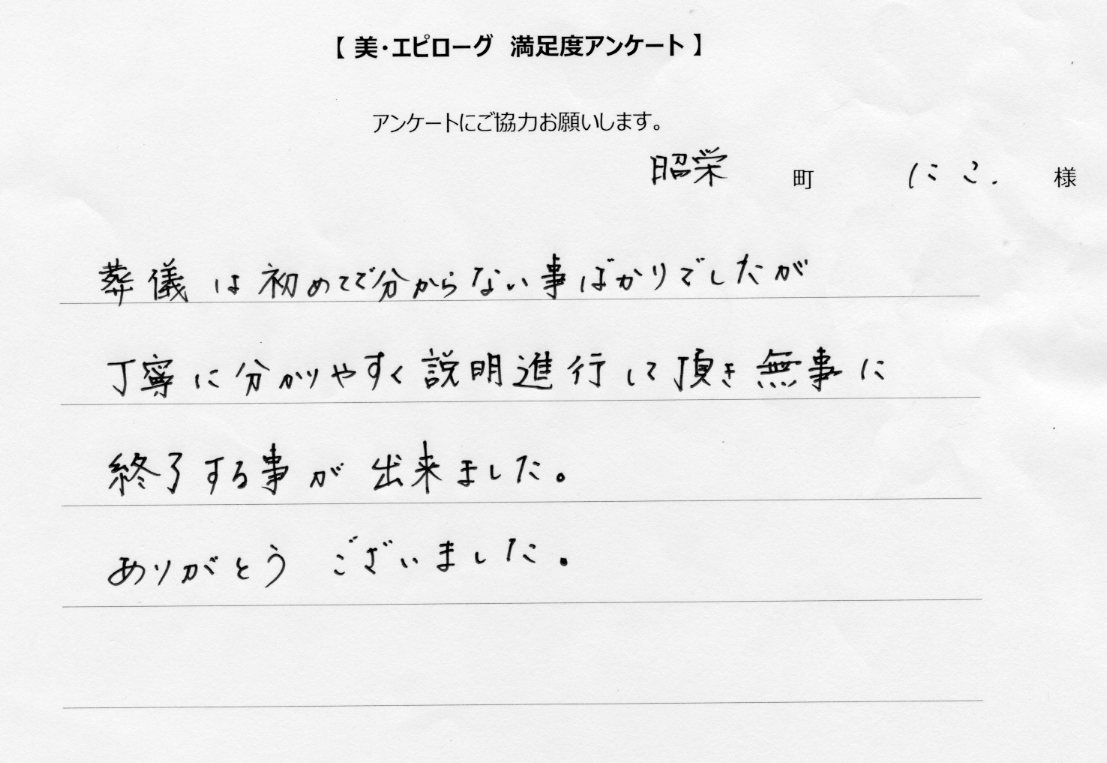 【 美・エピローグ 満足度アンケート 】
アンケートにご協力お願いします。
昭栄 町 にこ. 様
葬儀は初めてで分からない事ばかりでしたが
丁寧に分かりやすく説明進行して頂き無事に
終了する事が出来ました。
ありがとう ございました。